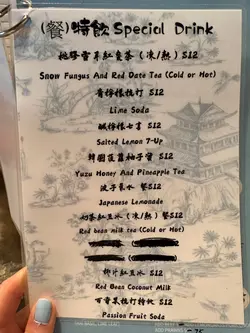 (餐)特飲 Special Drink
桃膠雪耳紅棗茶（凍/熱）$12
Snow Fungus And Red Date Tea (Cold or Hot)
青檸檬梳打 $12
Lime Soda
鹹檸檬七喜 $12
Salted Lemon 7-Up
韓國菠蘿柚子蜜 $12
Yuzu Honey And Pineapple Tea
波子氣水 餐$12
Japanese Lemonade
奶茶紅豆冰（凍/熱）餐$12
Red bean milk tea (Cold or Hot)
椰汁紅豆冰 $12
Red Bean Coconut Milk
百香果梳打特飲 $12
Passion Fruit Soda